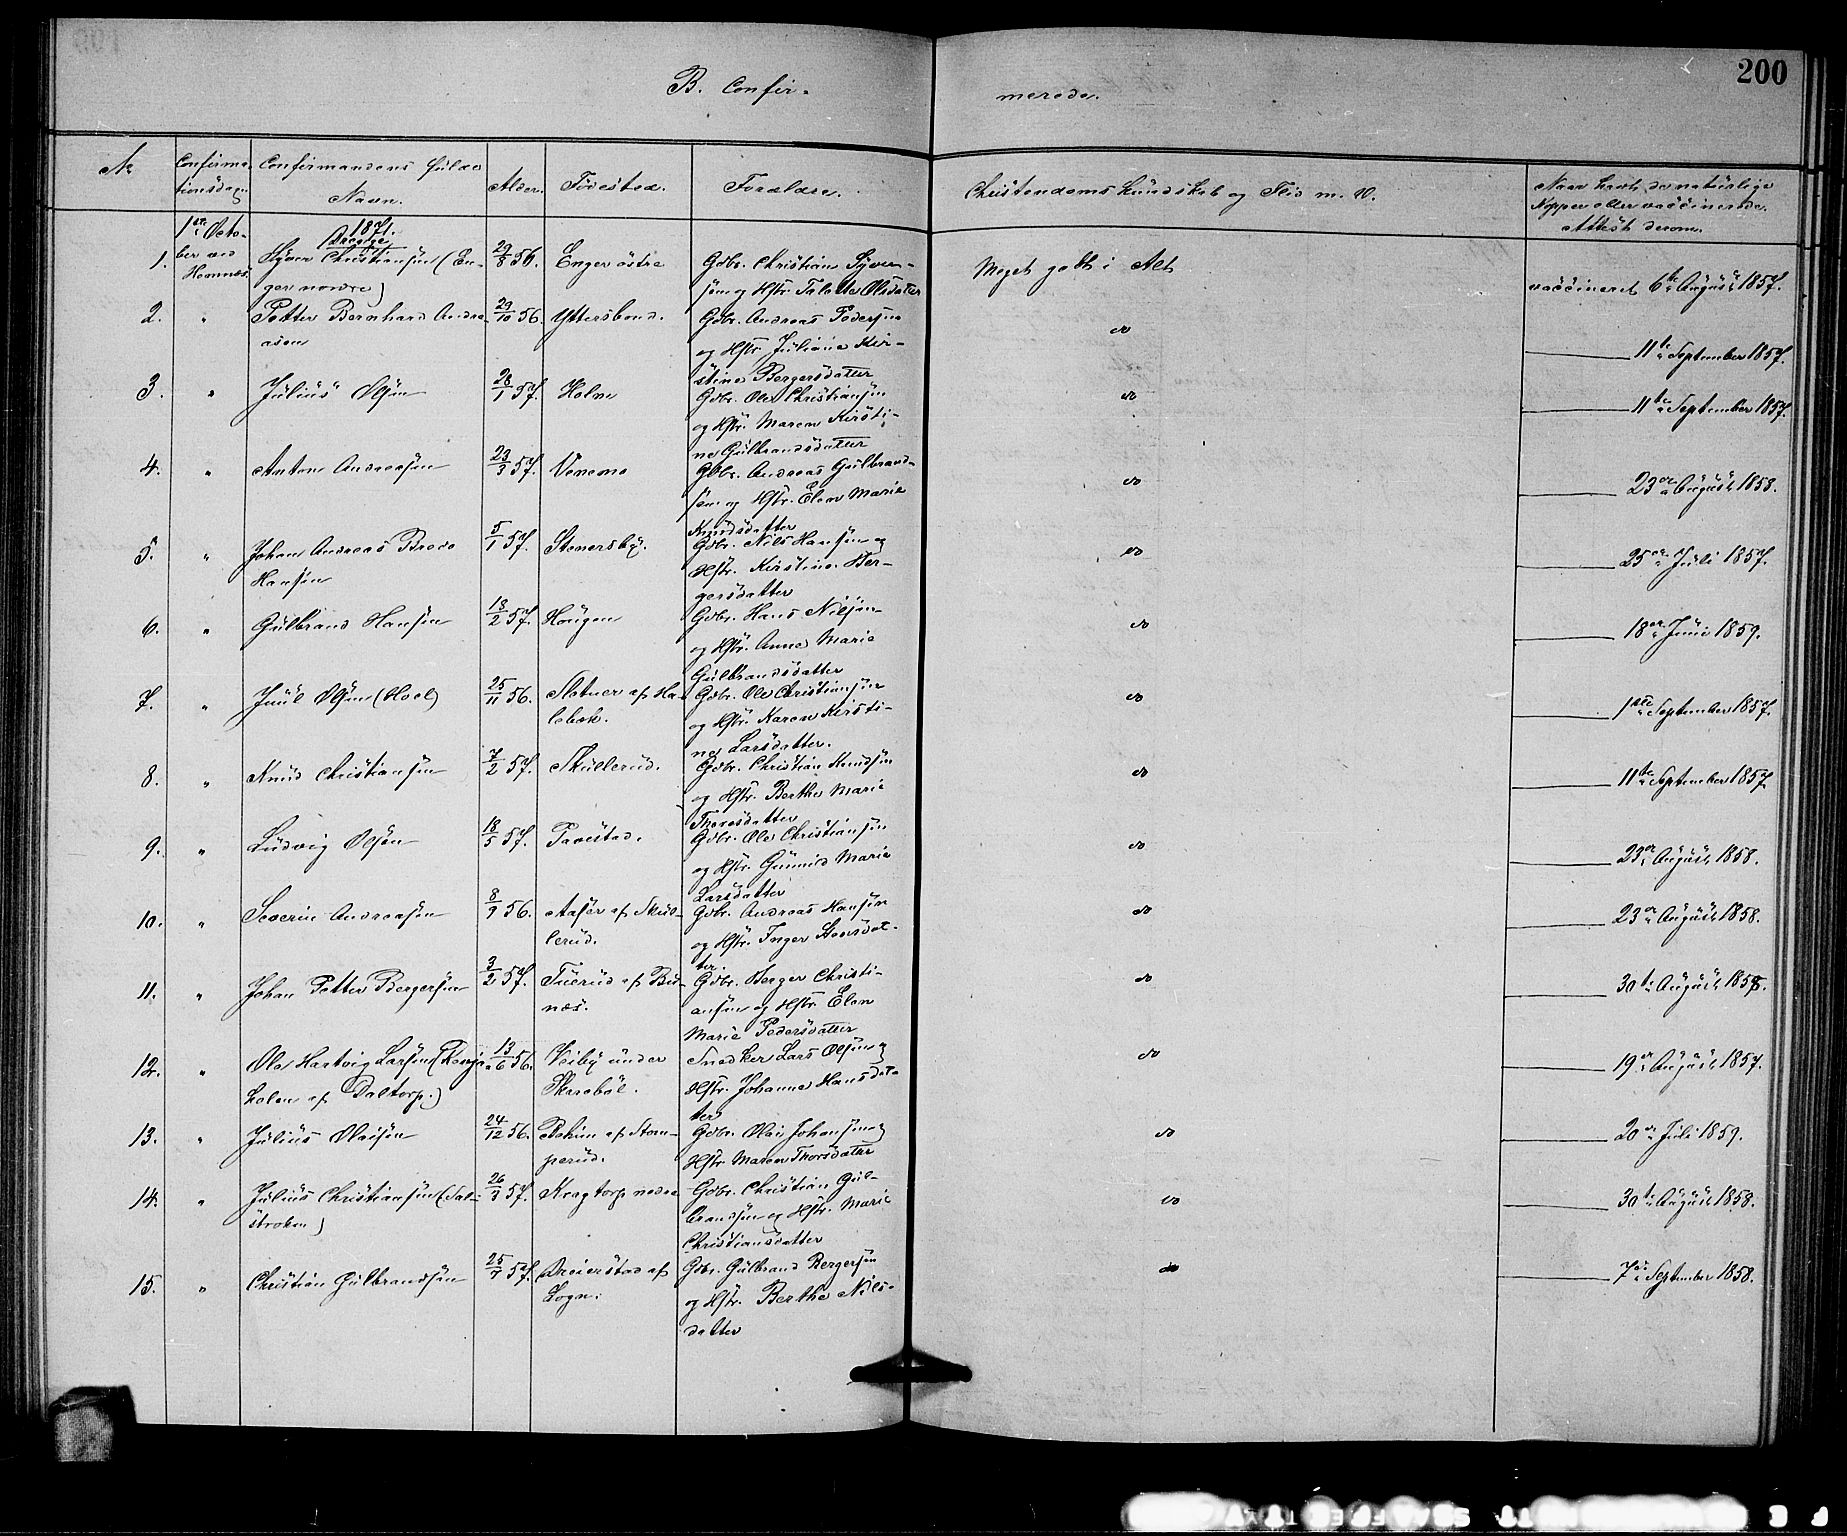 200
B. Confir-
merede.
No
Confirma-
tionsdagen
Confirmandens fulde
Navn.
Alder.
Födested.
Forældre.
Christendoms Kundskab og Flid m. V.
Naar havt de naturlige
Kopper eller vaccinerede.
Attest derom.
1871.
Drenge
1ste Octo-
ber ved
Hemnæs
1. Christiansen (En-
ger nordre)
29/8 56. Enger östre
Gdbr. Christian Syver-
sen og Hstr. Olsdatter
Meget godt i Alt
vaccineret 6te August 1857.
2. " Petter Bernhard Andre-
asen
29/10 56. Yttersbond.
Gdbr. Andreas Pedersen
og Hstr. Juliane Kir-
stine Bergersdatter
do
11te September 1857.
3. " Julius Olsen
28/1 57. Holm
Gdbr. Ole Christiansen
og Hstr. Maren Kirsti-
ne Gulbrandsdatter
do
11te September 1857.
4. " Anton Andreasen
23/3 57. Venemo
Gdbr. Andreas Gulbrand-
sen og Hstr. Elen Marie
Knudsdatter
do
23de August 1858.
5. " Johan Andreas Brede
Hansen
5/1 57. Stenersby.
Gdbr. Nils Hansen og
Hstr. Kirstine Ber-
gersdatter
do
25de Juli 1857.
6. " Gulbrand Hansen
13/2 57. Haugen
Gdbr. Hans Nilsen
og Hstr. Anne Marie
Gulbrandsdatter
do
18de Juni 1859.
7. " Juul Olsen (Hoel)
25/11 56. Slotner af Ha-
lebæk.
Gdbr. Ole Christiansen
og Hstr. Karen Kirsti-
ne Larsdatter.
do
1ste September 1857.
8. " Knud Christiansen
7/2 57. Skullerud.
Gdbr. Christian Knudsen
og Hstr. Berthe Marie
Thoresdatter
do
11te September 1857
9. " Ludvig Olsen
18/5 57. Tavestad.
Gdbr. Ole Christiansen
og Hstr. Gunnild Marie
Larsdatter
do
23de August 1858.
10. " Severin Andreasen
8/9 56. Aaser af Skul-
lerud.
Gdbr. Andreas Hansen
og Hstr. Inger Stensdat-
ter
do
23de August 1858.
11. " Johan Petter Bergersen
3/2 57. Tuerud af Bu-
næs.
Gdbr. Berger Christi-
ansen og Hstr. Elen
Marie Pedersdatter
do
30te August 1858.
12. " Ole Hartvig Larsen
af Daltorp.)
13/6 56. Veiby under
Skaraböl.
Snedker Lars Olsen og
Hstr. Johanne Hansdat-
ter
do
19de August 1857.
13. " Julius Olaisen
24/12 56. af Stom-
perud.
Gdbr. Olai Johansen og
Hstr. Maren Thorsdatter
do
20de Juli 1859.
14. " Julius Christiansen
stroken)
26/3 57. Kragtorp nedre
Gdbr. Christian Gul-
brandsen og Hstr. Marie
Christiansdatter
do
30te August 1858.
15. " Christian Gulbrandsen
57. Dreierstad af
Sogn.
Gdbr. Gulbrand Bergersen
og Hstr. Berthe Nils-
datter
do
7de September 1858.